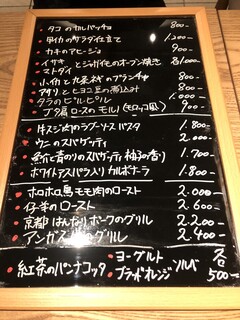 ・タコのカルパッチョ 800-
・タイカのサラダ仕立て 1.200-
・カキのアヒージョ 900-
・イサキとジャガイモのオーブン焼き 各1000-
・マトダイ
・小イカと九条ネギのプランチャ 800-
・アサリとヒヨコ豆の煮込み 800-
・タラのピルピル 1.000-
・ブタ肩ロースのモルノ(モロッコ風) 900-
・牛スジ肉のラグーソースパスタ 1.800-
・ウニのスパゲッティ 2.000-
・と青のりのスパゲッティ 柚子の香り 1.700-
・ホワイトアスパラ入りカルボナーラ 1.800-
・ホロホロ鳥モモ肉のロースト 2.000-
・仔羊のロースト 2.600-
・京都はんなりポークのグリル 2.200-
・アンガス のグリル 2.400-
・紅茶のパンナコッタ ・ヨーグルト
・ブラッドオレンジ ソルベ 各500-